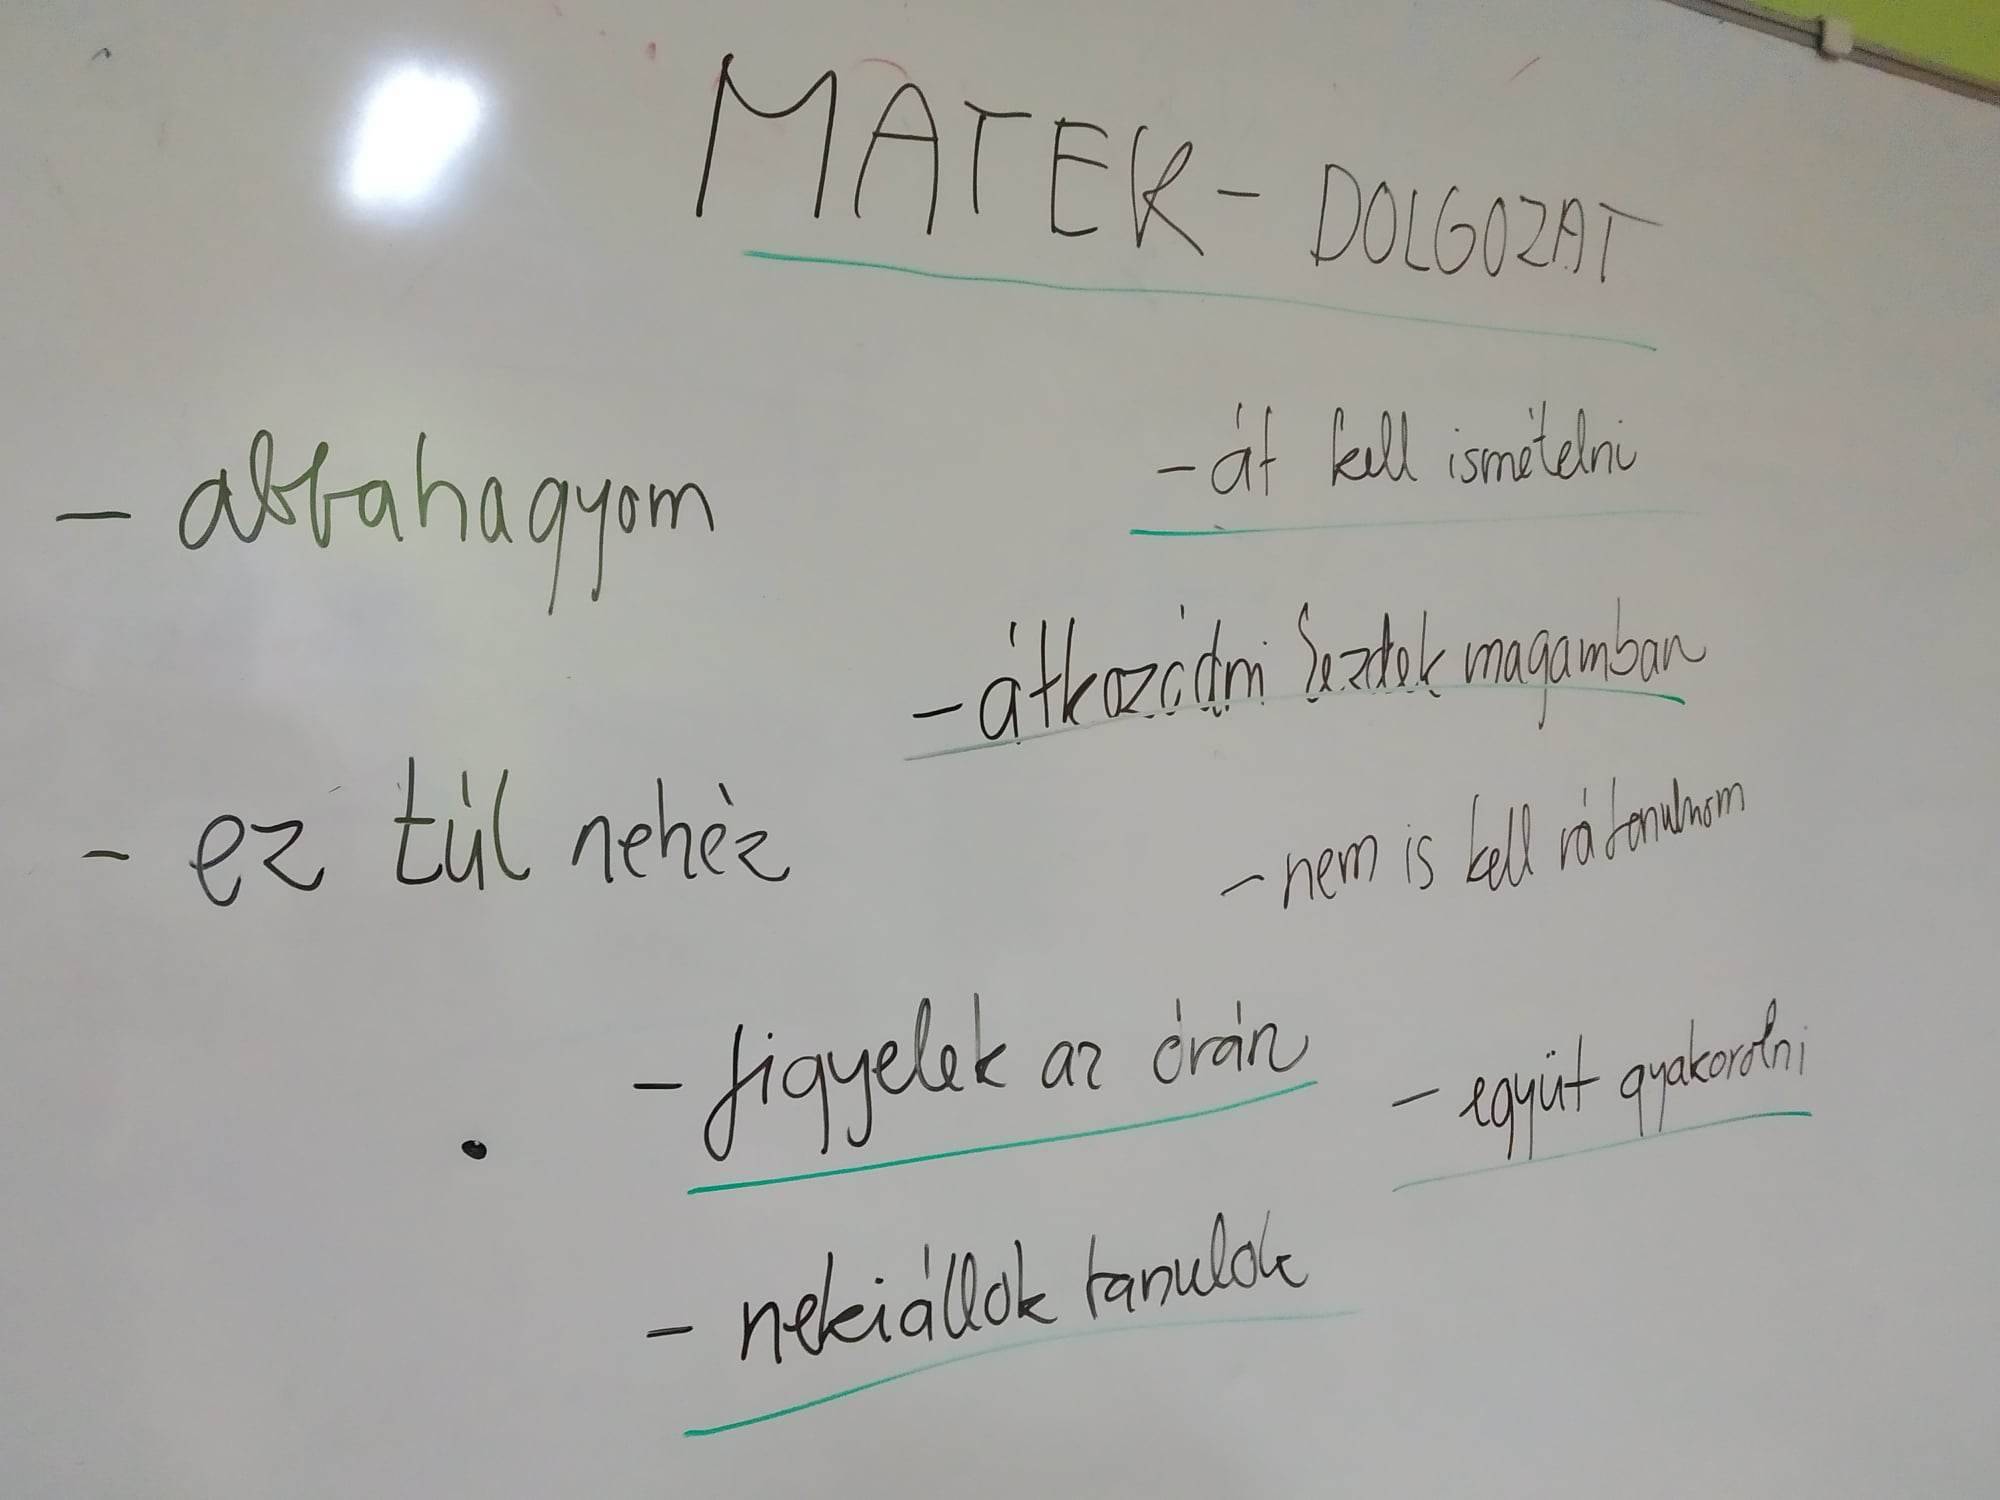 MATEK - DOLGOZAT
- át kell ismételni
- abbahagyom
- átkozódni kezdek magamban
- ez túl nehéz
- nem is kell rá tanulnom
- figyelek az órán
- együt gyakorolni
- nekiállok tanulok